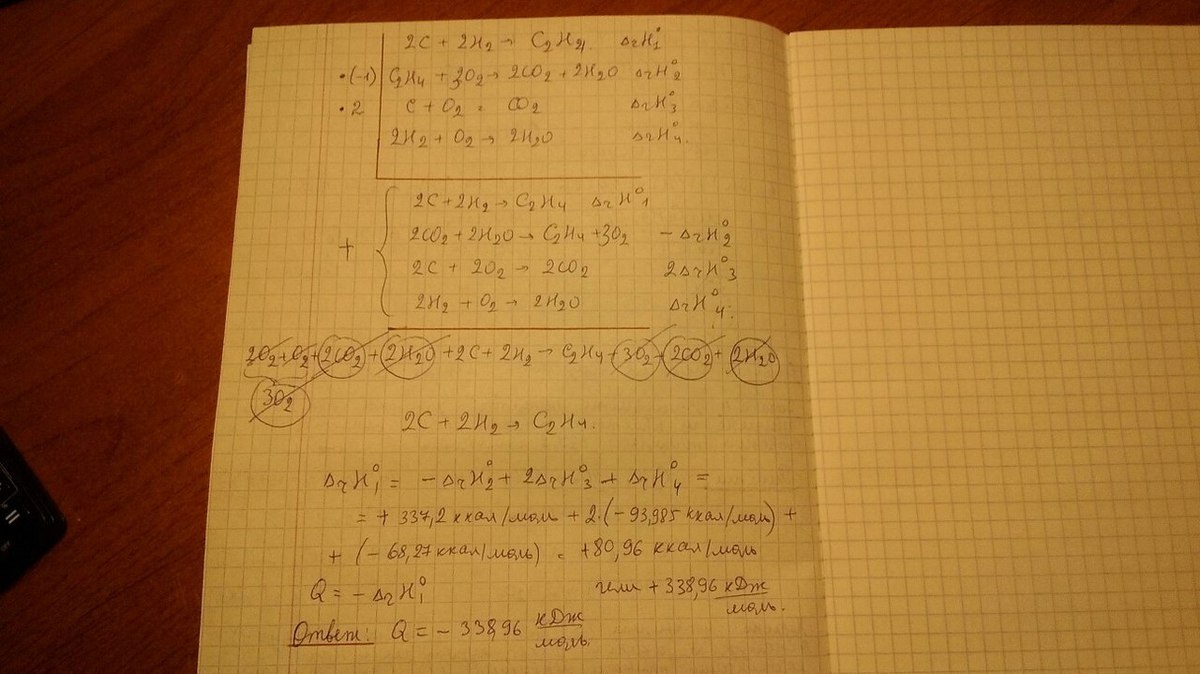 2C + 2H₂ → C₂H₄. ΔrH°₁
•(-1) C₂H₄ + 3O₂ → 2CO₂ + 2H₂O ΔrH°₂
•2 C + O₂ = CO₂ ΔrH°₃
2H₂ + O₂ → 2H₂O ΔrH°₄.
2C + 2H₂ → C₂H₄ ΔrH°₁
2CO₂ + 2H₂O → C₂H₄ + 3O₂ - ΔrH°₂
+ 2C + 2O₂ → 2CO₂ 2ΔrH°₃
2H₂ + O₂ → 2H₂O ΔrH°₄.
2O₂ + O₂ + 2CO₂ + 2H₂O + 2C + 2H₂ → C₂H₄ + 3O₂ + 2CO₂ + 2H₂O
3O₂
2C + 2H₂ → C₂H₄.
ΔrH°₁ = - ΔrH°₂ + 2ΔrH°₃ + ΔrH°₄ =
= + 337,2 ккал/моль + 2·(-93,985 ккал/моль) +
+ (-68,27 ккал/моль) = +80,96 ккал/моль
Q = - ΔrH°₁ или + 338,96 кДж/моль.
Ответ: Q = - 338,96 кДж/моль.